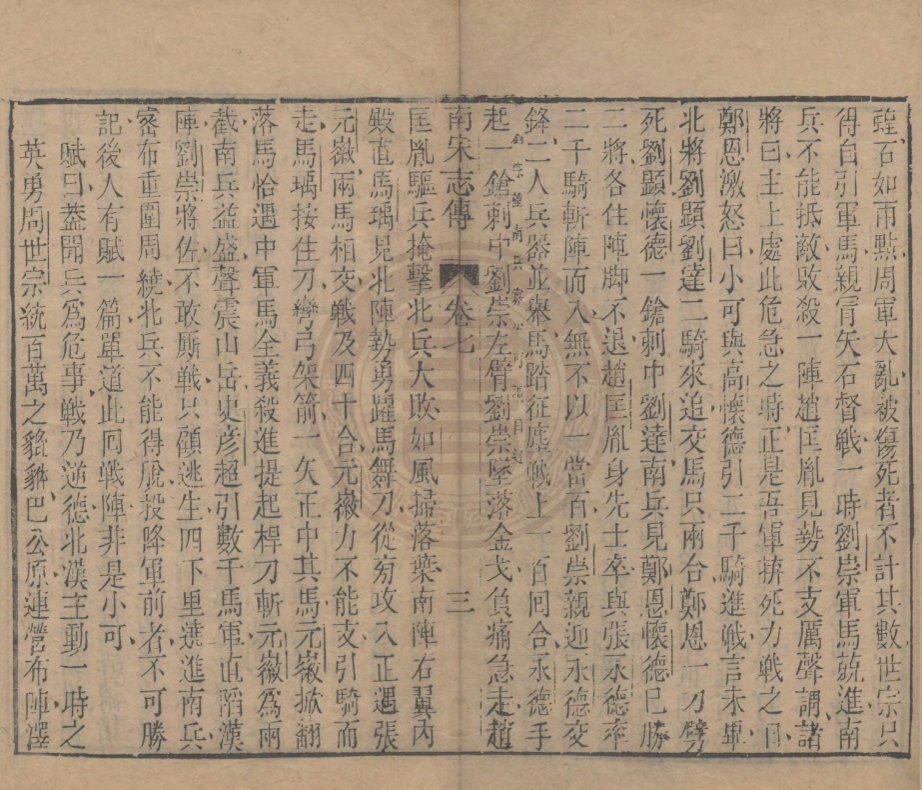 蝗石如雨點周軍大亂被傷死者不計其數世宗只
得自引軍馬親冐矢石督戰一時劉崇軍馬兢進南
兵不能抵敵敗殺一陣趙匡胤見勢不支厲聲謂諸
將曰主上處此危急之時正是吾軍拚死力戰之日
鄭恩激怒曰小可與高懷德引二千騎進戰言未畢
北將劉顯劉達二騎來追交馬只兩合鄭恩一刀劈
死劉顯懷德一鎗刺中劉達南兵見鄭恩懷德已勝
二將各住陣脚不退趙匡胤身先士卒與張永德率
二千騎斬陣而入無不以一當百劉崇親迎永德交
鋒二人兵器並舉馬踏征塵戰上一百回合永德手
起一鎗刺中劉崇左臂劉崇墜落金戈負痛急走趙
南宋志傳 卷七 三
匡胤驅兵掩擊北兵大敗如風掃落葉南陣右翼內
殿直馬瑀見北陣勢勇躍馬舞刀從旁攻入正遇張
元徽兩馬相交戰及四十合元徽力不能支引騎而
走馬瑀按住刀彎弓架箭一矢正中其馬元徽掀翻
落馬恰遇中軍馬全義殺進提起桿刀斬元徽爲兩
截南兵益盛聲震山岳史彥超引數千馬軍直陷漢
陣劉崇將佐不敢厮戰只顧逃生四下里遶進南兵
密布重圍周繞北兵不能得脫投降軍前者不可勝
記後人有賦一篇單道此囘戰陣非是小可
賦曰葢聞兵爲危事戰乃逆德北漢主動一時之
英勇周世宗統百萬之貔貅巴公原連營布陣澤